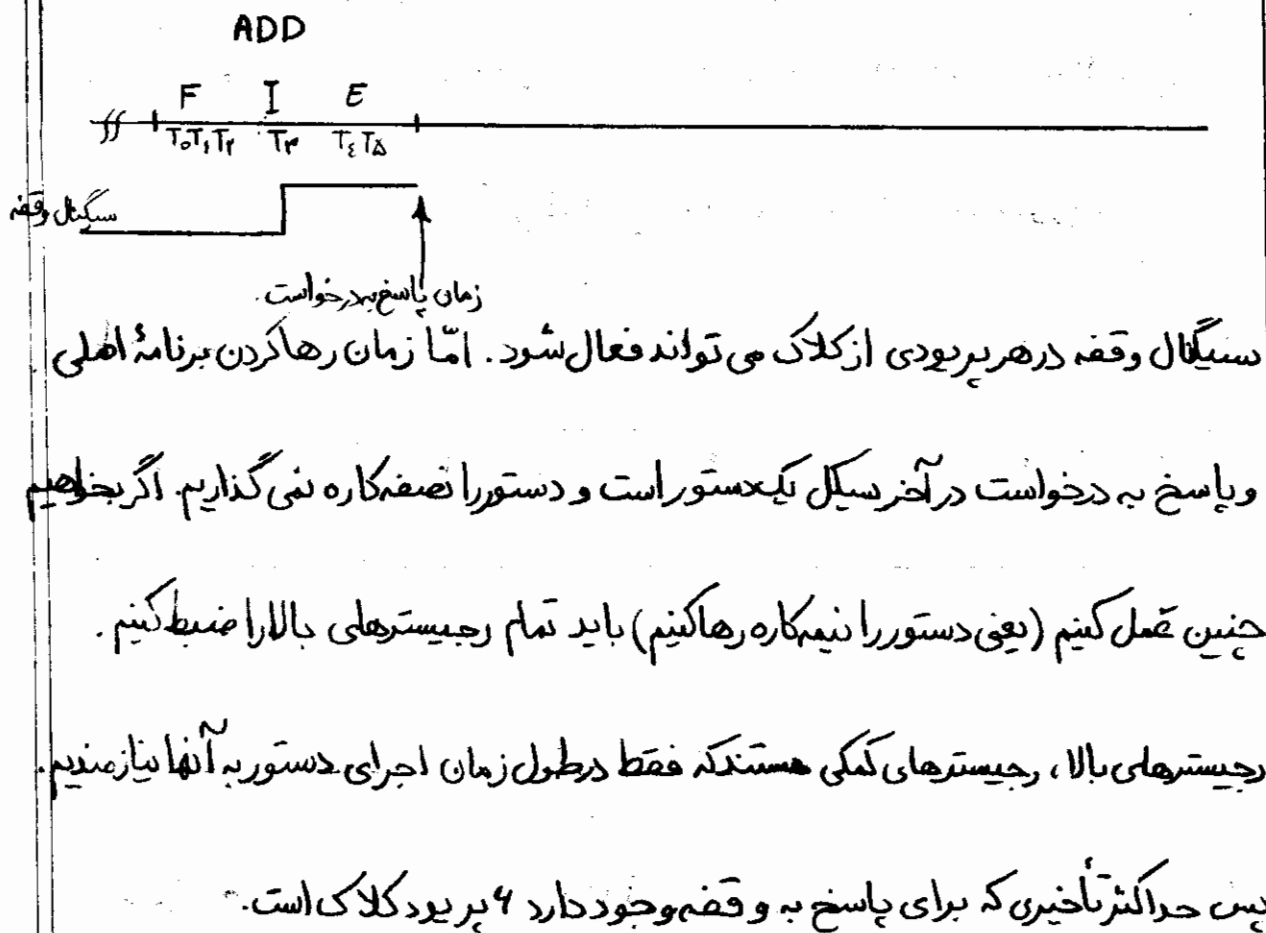 ADD
F I E
T₀T₁T₂ T₃ T₄T₅
سیگنال وقفه
زمان پاسخ به درخواست.
سیگنال وقفه در هر پریودی از کلاک می تواند فعال شود. امّا زمان رها کردن برنامهٔ اصلی
و پاسخ به درخواست در آخر سیکل یک دستور است و دستور را نصفه کاره نمی گذاریم. اگر بخواهیم
چنین عمل کنیم (یعنی دستور را نیمه کاره رها کنیم) باید تمام رجیسترهای بالا را ضبط کنیم.
رجیسترهای بالا، رجیسترهای کمکی هستند که فقط در طول زمان اجرای دستور به آنها نیازمندیم.
پس حداکثر تأخیری که برای پاسخ به وقفه وجود دارد ۶ پریود کلاک است.